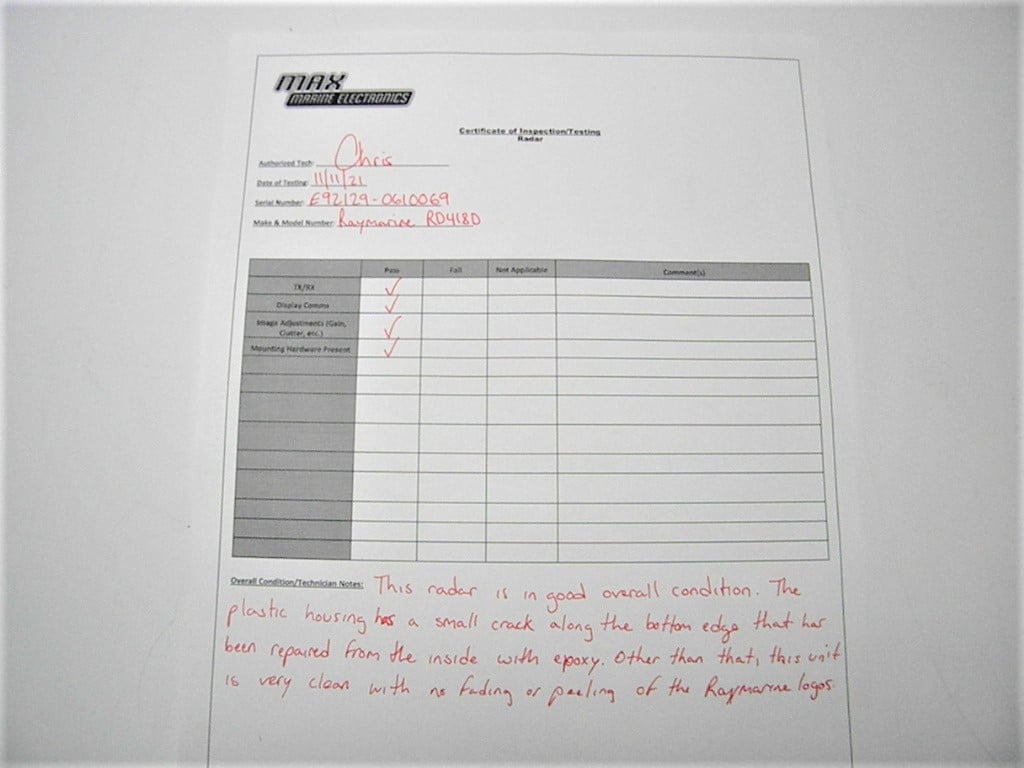 MAX
MARINE ELECTRONICS
Certificate of Inspection/Testing
Radar
Authorized Tech: Chris
Date of Testing: 11/11/21
Serial Number: E92129-0610069
Make & Model Number: Raymarine RD418D
Pass Fail Not Applicable Comment(s)
TX/RX ✓
Display Comms ✓
Image Adjustments (Gain,
Clutter, etc.) ✓
Mounting Hardware Present ✓
Overall Condition/Technician Notes: This radar is in good overall condition. The
plastic housing has a small crack along the bottom edge that has
been repaired from the inside with epoxy. Other than that, this unit
is very clean with no fading or peeling of the Raymarine logos.